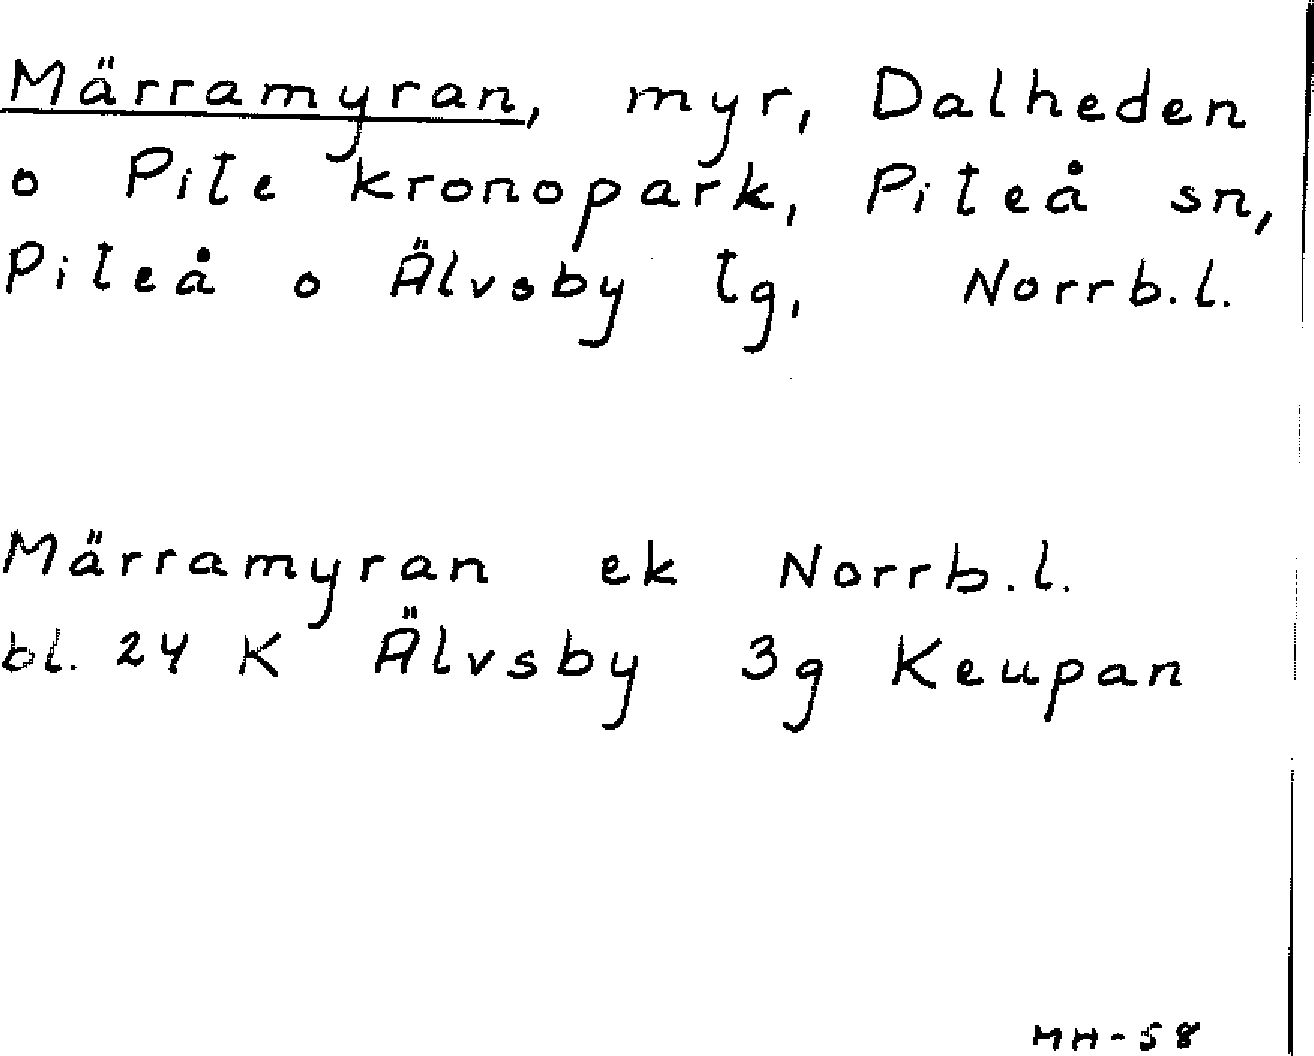 Märramyran, myr, Dalheden
o Pite kronopark, Piteå sn,
Piteå o Älvsby tg, Norrb.l.
Märramyran ek Norrb.l.
bl. 24 K Älvsby 3g Keupan
MH-58